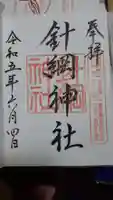 奉拝
針綱神社
令和五年六月四日